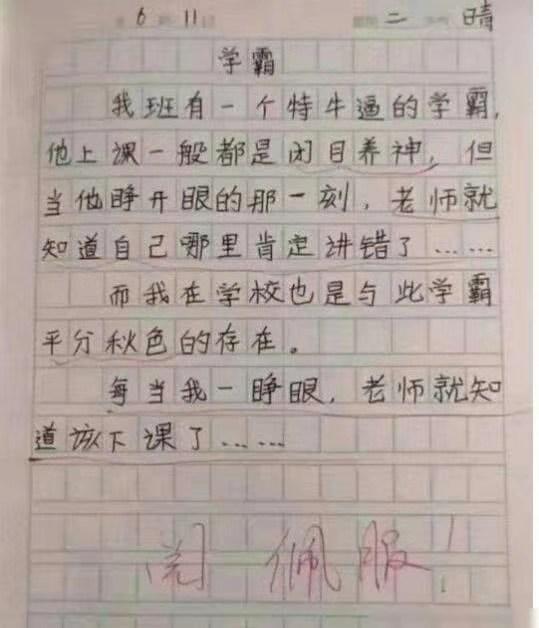 6 11 二 晴
学霸
我班有一个特牛逼的学霸，
他上课一般都是闭目养神，但
当他睁开眼的那一刻，老师就
知道自己哪里肯定讲错了……
而我在学校也是与此学霸
平分秋色的存在。
每当我一睁眼，老师就知
道该下课了……
阅 佩服！